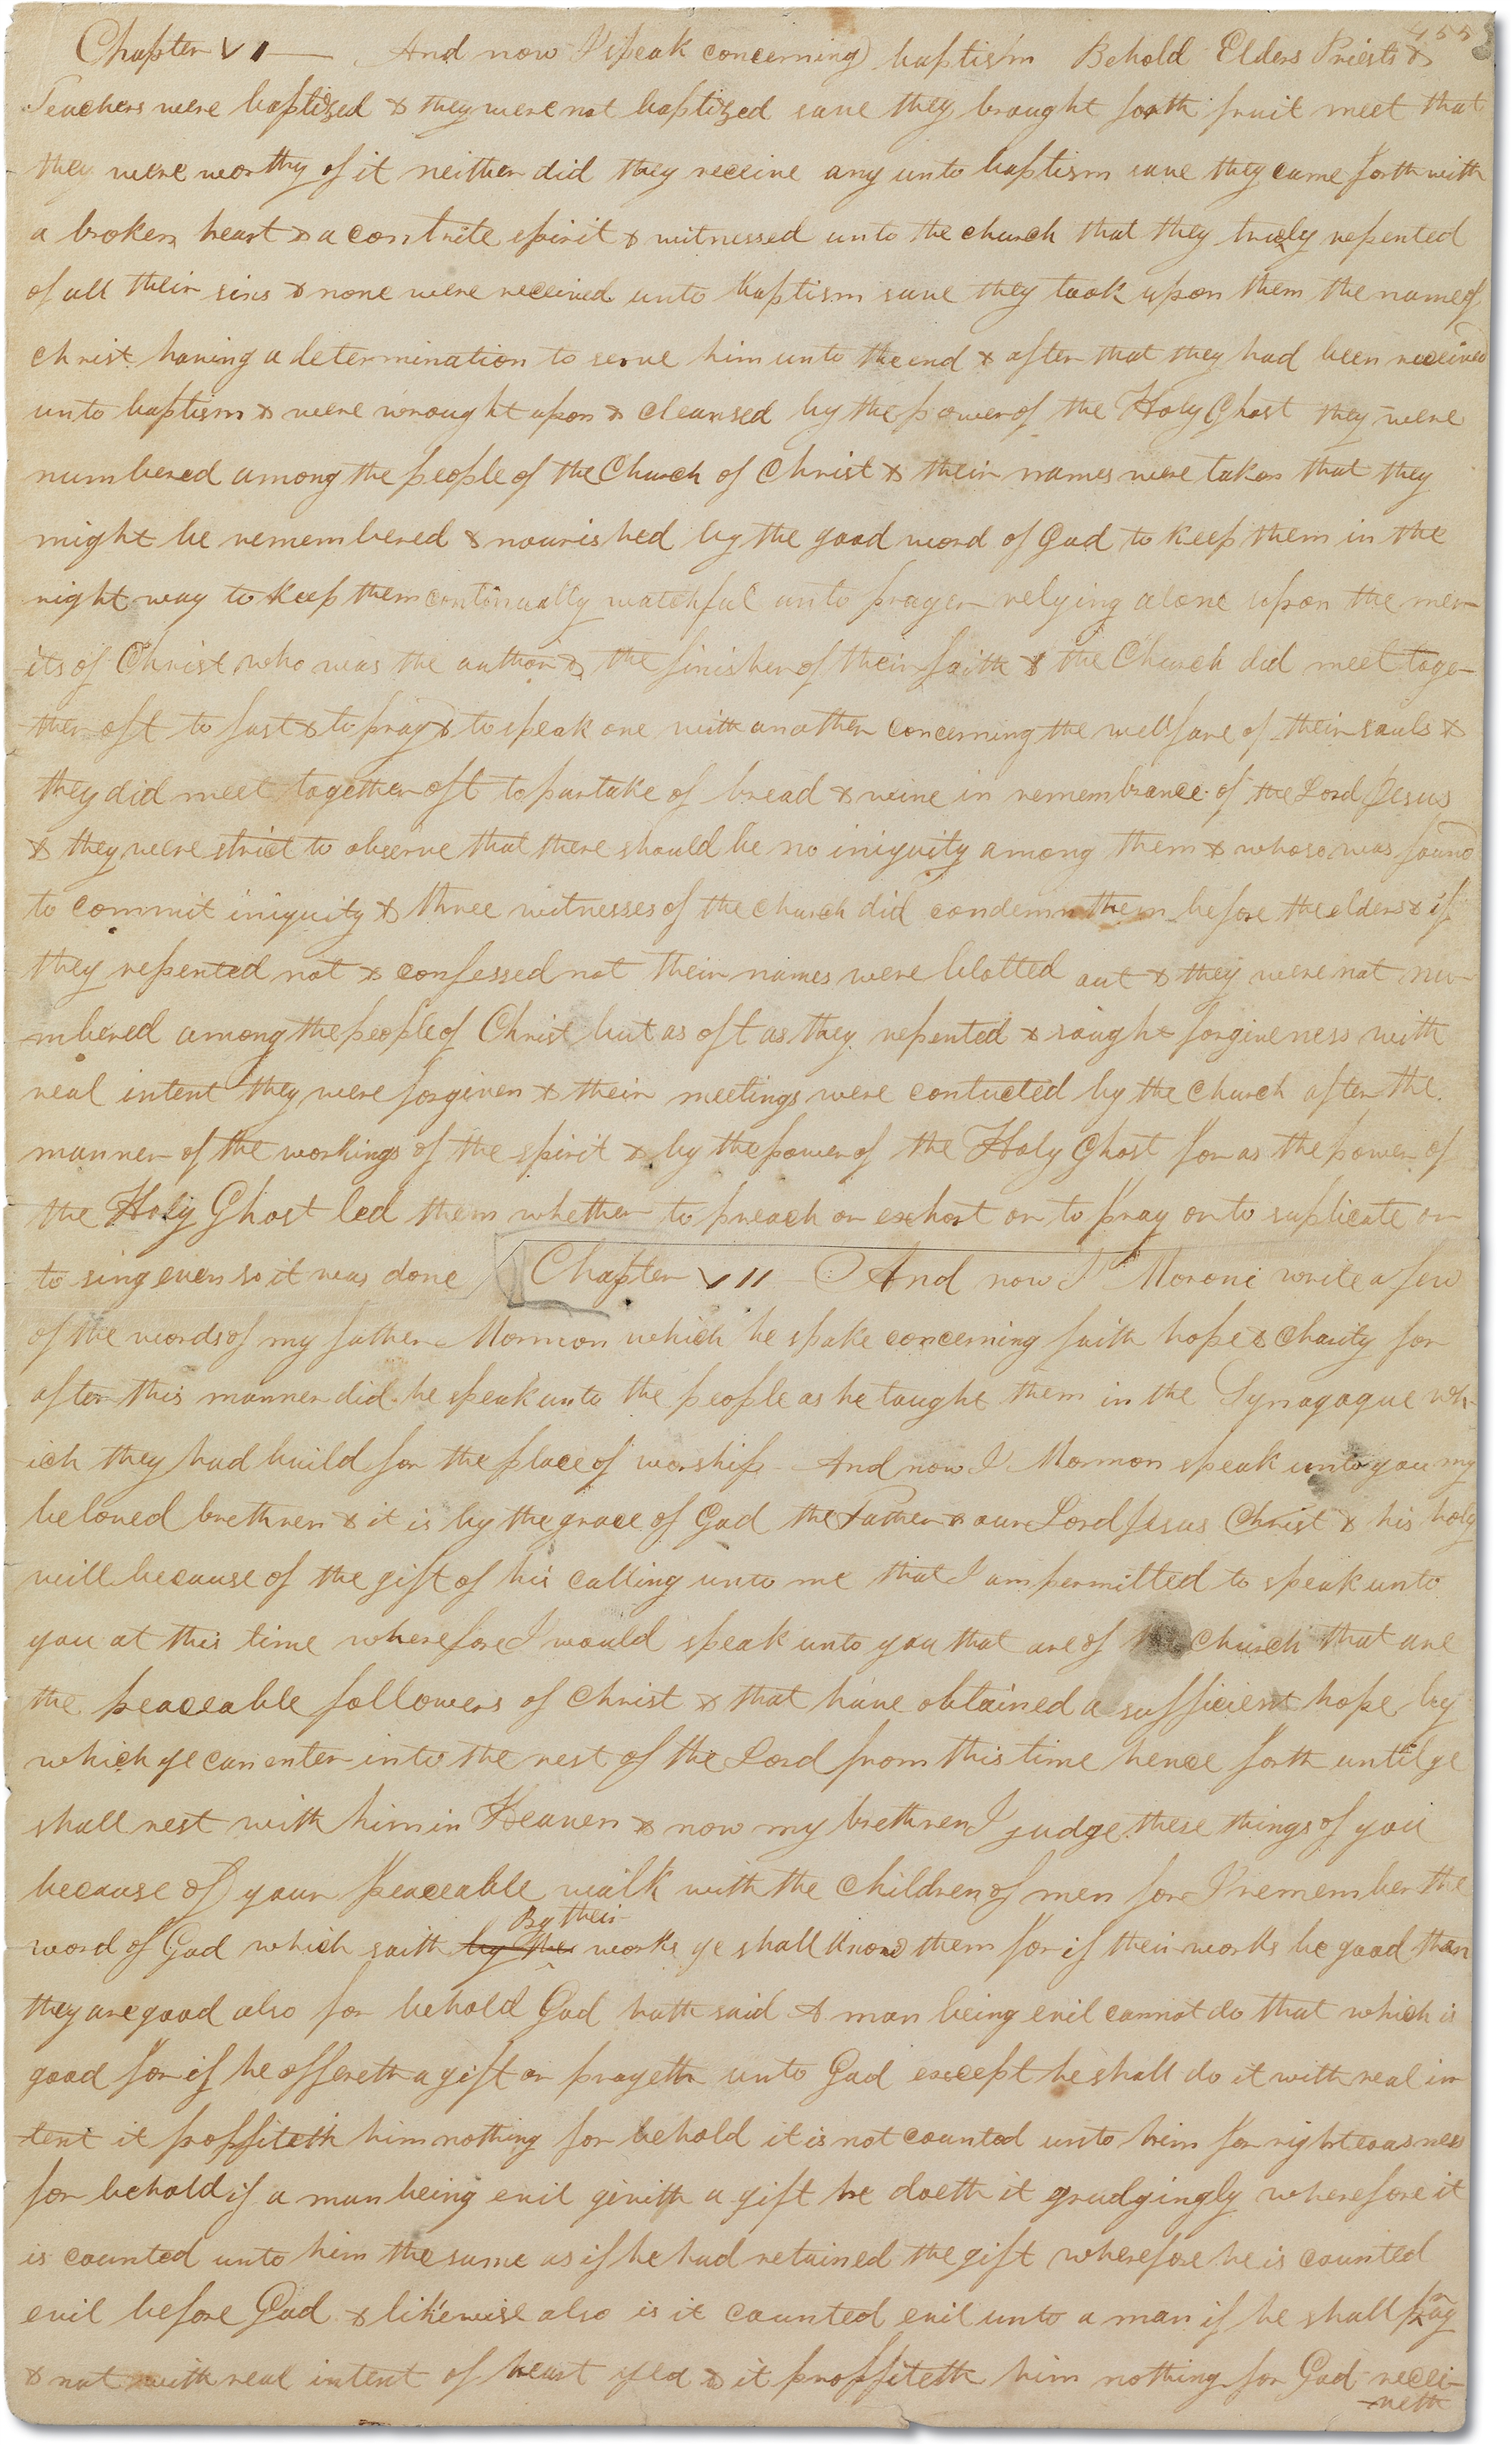 455
Chapter VI — And now I speak concerning baptism Behold Elders Priests &
Teachers were baptized & they were not baptized save they brought forth fruit meet that
they were worthy of it neither did they receive any unto baptism save they came forth with
a broken heart & a contrite spirit & witnessed unto the church that they truely repented
of all their sins & none were received unto baptism save they took upon them the name of
christ having a determination to serve him unto the end & after that they had been received
unto baptism & were wrought upon & cleansed by the power of the Holy Ghost they were
numbered among the people of the Church of Christ & their names were taken that they
might be remembered & nourished by the good word of God to keep them in the
right way to keep them continually watchful unto prayer relying alone upon the mer-
-its of Christ who was the author & the finisher of their faith & the Church did meet toge-
ther oft to fast & to pray & to speak one with another concerning the wellfare of their souls &
they did meet together oft to partake of bread & wine in remembrance of the Lord Jesus
& they were strict to observe that there should be no iniquity among them & whoso was found
to commit iniquity & three witnesses of the church did condemn them before the elders & if
they repented not & confessed not their names were blotted out & they were not nu-
-mbered among the people of Christ but as oft as they repented & sought forgiveness with
real intent they were forgiven & their meetings were contucted by the church after the
manner of the workings of the spirit & by the power of the Holy Ghost for as the power of
the Holy Ghost led them whether to preach or exhort or to pray or to suplicate or
to sing even so it was done Chapter VII And now I Moroni write a few
of the words of my father Mormon which he spake concerning faith hope & Charity for
after this manner did he speak unto the people as he taught them in the Synagogue wh-
-ich they had build for the place of worship And now I Mormon speak unto you my
beloved brethren & it is by the grace of God the Father & our Lord Jesus Christ & his holy
will because of the gift of his calling unto me that I am permitted to speak unto
you at this time wherefore I would speak unto you that are of church that are
the peaceable followers of christ & that have obtained a sufficient hope by
which ye can enter into the rest of the Lord from this time hence forth until ye
shall rest with him in Heaven & now my brethren I judge these things of you
because of your peaceable walk with the children of men for I remember the
By their
word of God which saith by the works ye shall know them for if their works be good then
they are good also for behold God hath said A man being evil cannot do that which is
good for if he offereth a gift or prayeth unto God except he shall do it with real in
-tent it proffiteth him nothing for behold it is not counted unto him for righteousness
for behold if a man being evil giveth a gift he doeth it grudgingly wherefore it
is counted unto him the same as if he had retained the gift wherefore he is counted
evil before God & likewise also is it counted evil unto a man if he shall pray
& not with real intent of heart yea & it proffiteth him nothing for God recei-
-veth